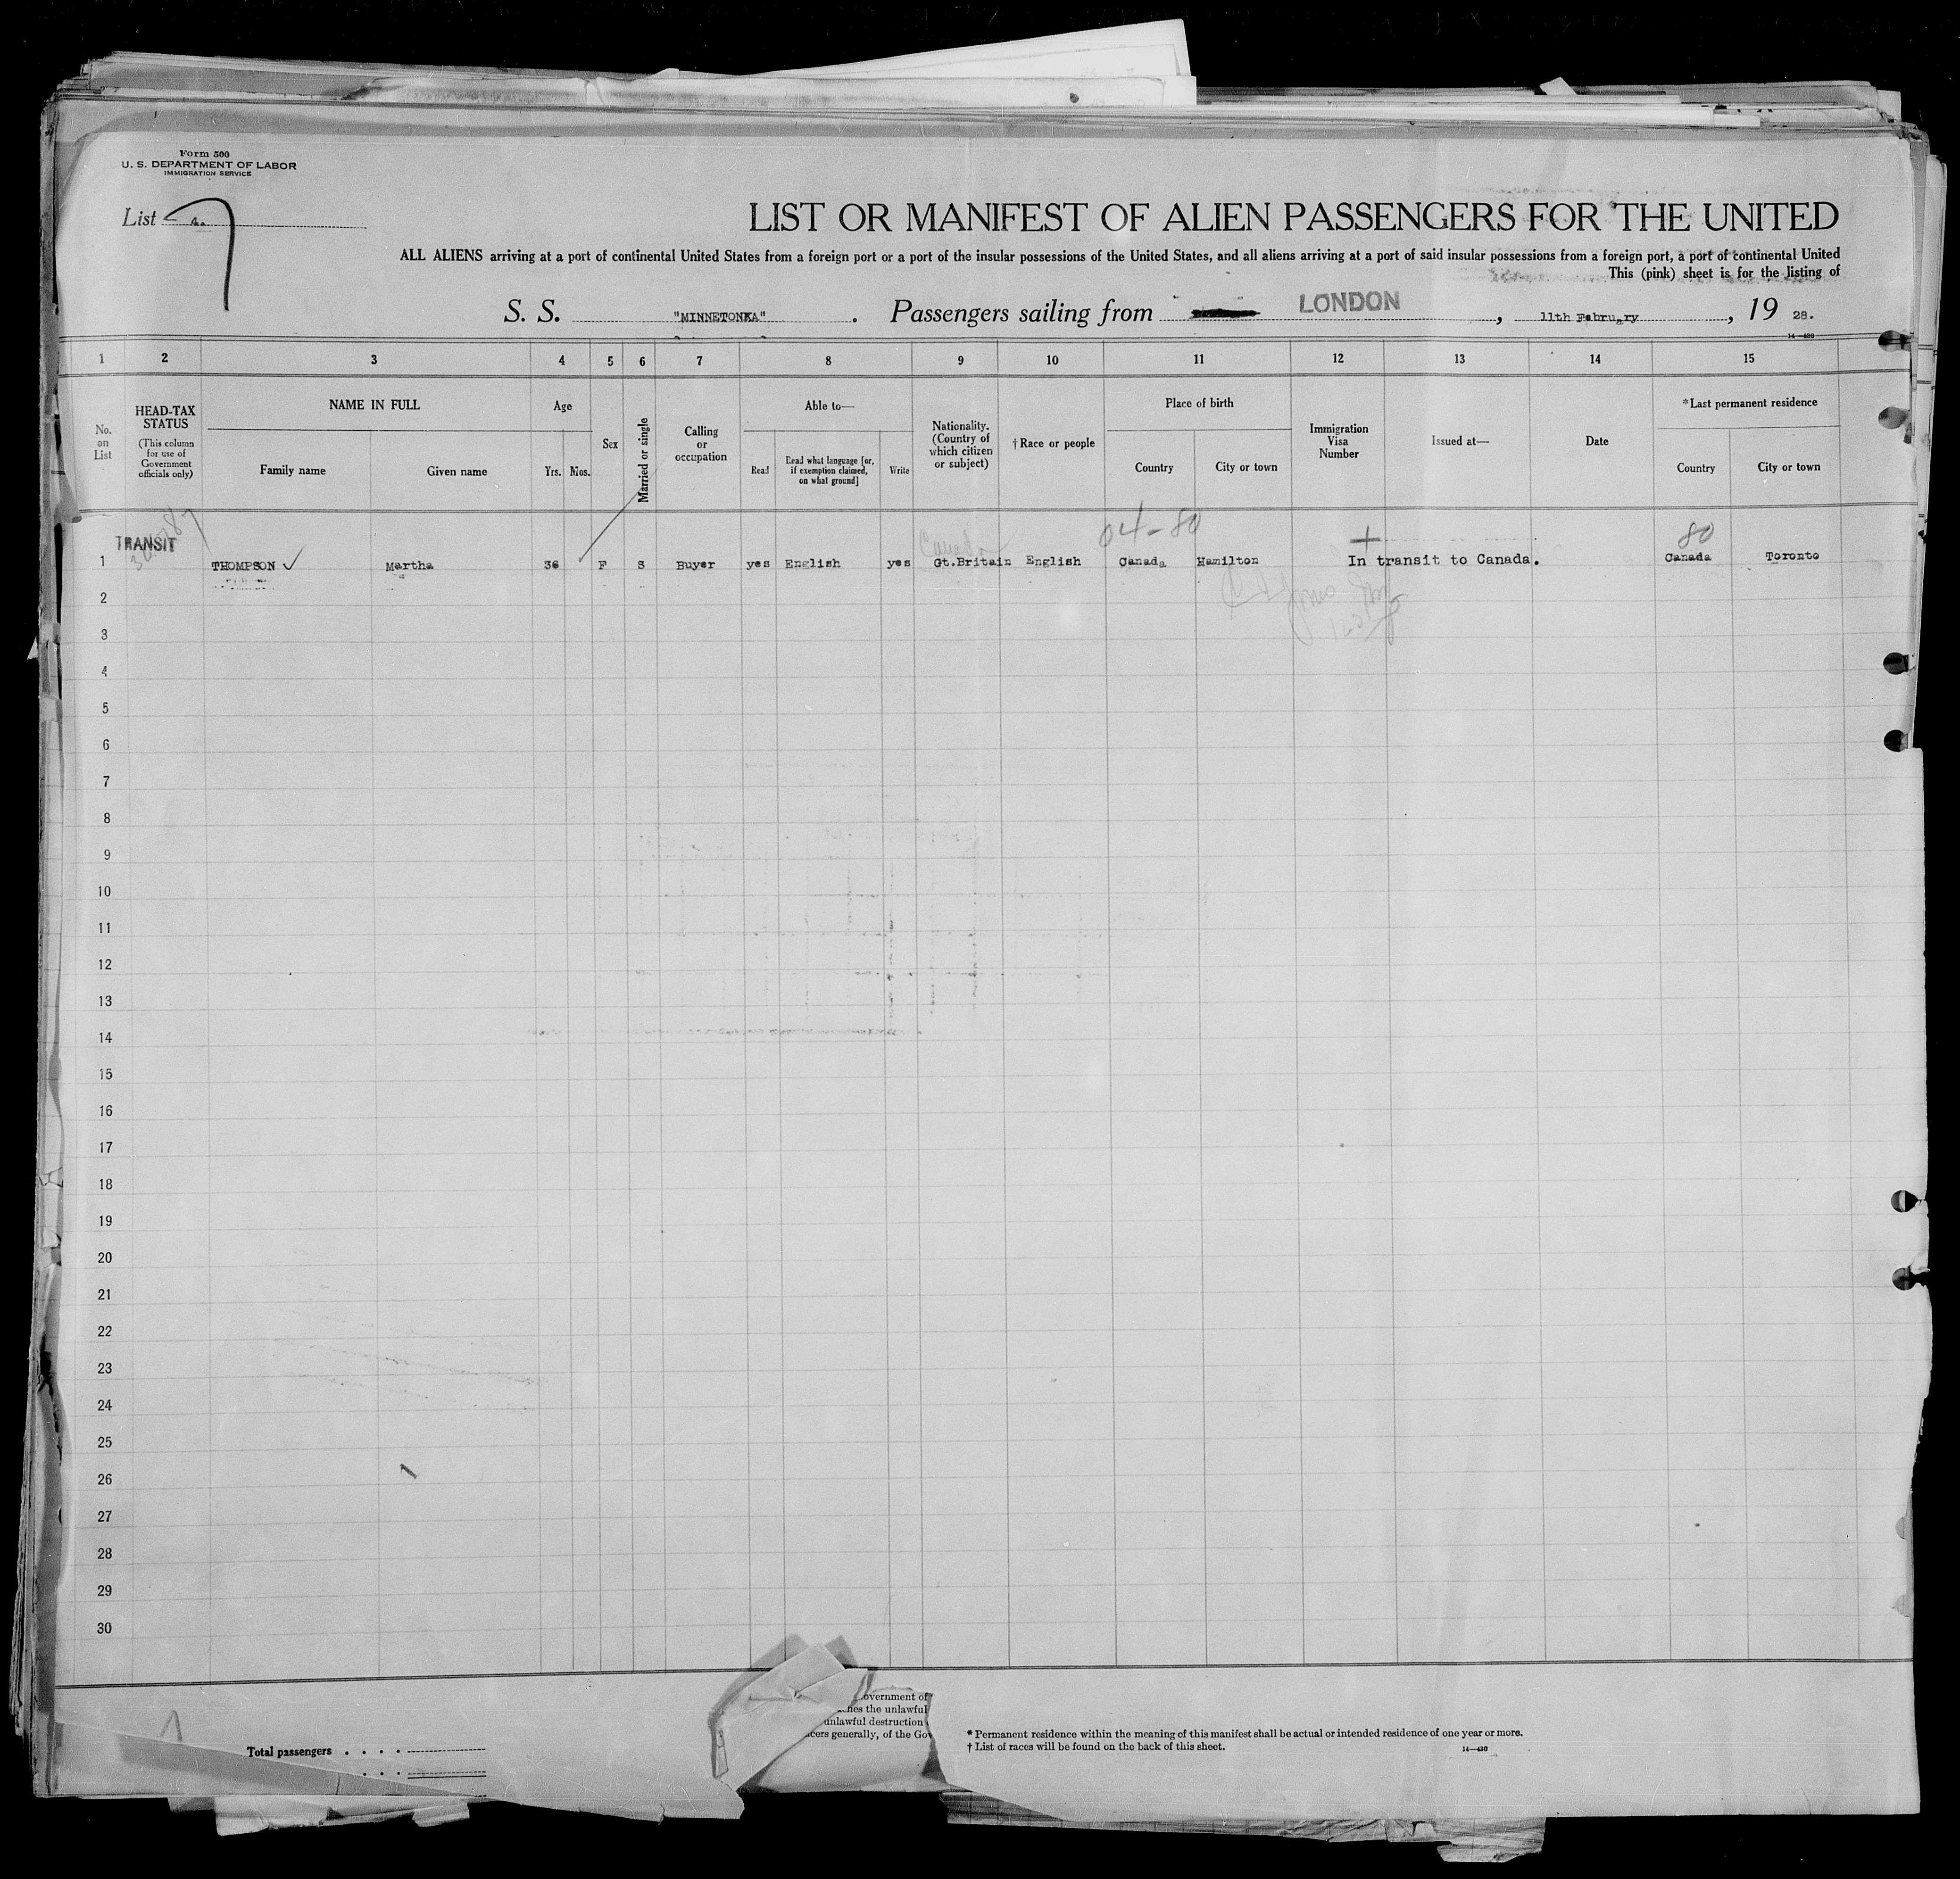 Form 500
U. S. DEPARTMENT OF LABOR
IMMIGRATION SERVICE
List 7
LIST OR MANIFEST OF ALIEN PASSENGERS FOR THE UNITED
ALL ALIENS arriving at a port of continental United States from a foreign port or a port of the insular possessions of the United States, and all aliens arriving at a port of said insular possessions from a foreign port, a port of continental United
This (pink) sheet is for the listing of
S. S. "MINNETONKA". Passengers sailing from LONDON, 11th February, 19 28.
1 2 3 4 5 6 7 8 9 10 11 12 13 14 15
No. on List
HEAD-TAX STATUS
(This column for use of Government officials only)
NAME IN FULL
Family name Given name
Age
Yrs. Mos.
Sex
Married or single
Calling or occupation
Able to—
Read
Read what language [or, if exemption claimed, on what ground]
Write
Nationality. (Country of which citizen or subject)
†Race or people
Place of birth
Country City or town
Immigration Visa Number
Issued at—
Date
*Last permanent residence
Country City or town
Canada 04-80 80
TRANSIT
1 THOMPSON ✓ Martha 36 F S Buyer yes English yes Gt.Britain English Canada Hamilton In transit to Canada. Canada Toronto
2
3
4
5
6
7
8
9
10
11
12
13
14
15
16
17
18
19
20
21
22
23
24
25
26
27
28
29
30
Total passengers . . . .
overnment of
the unlawful
unlawful destruction
generally, of the
* Permanent residence within the meaning of this manifest shall be actual or intended residence of one year or more.
† List of races will be found on the back of this sheet.
14—430